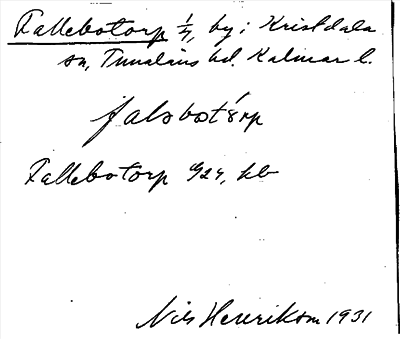 Fallebotorp 1/4, by i Kristdala
sn, Tunaläns hd. Kalmar l.
falsbotórp
Fallebotorp 1924, kb
Nils Henrikson 1931